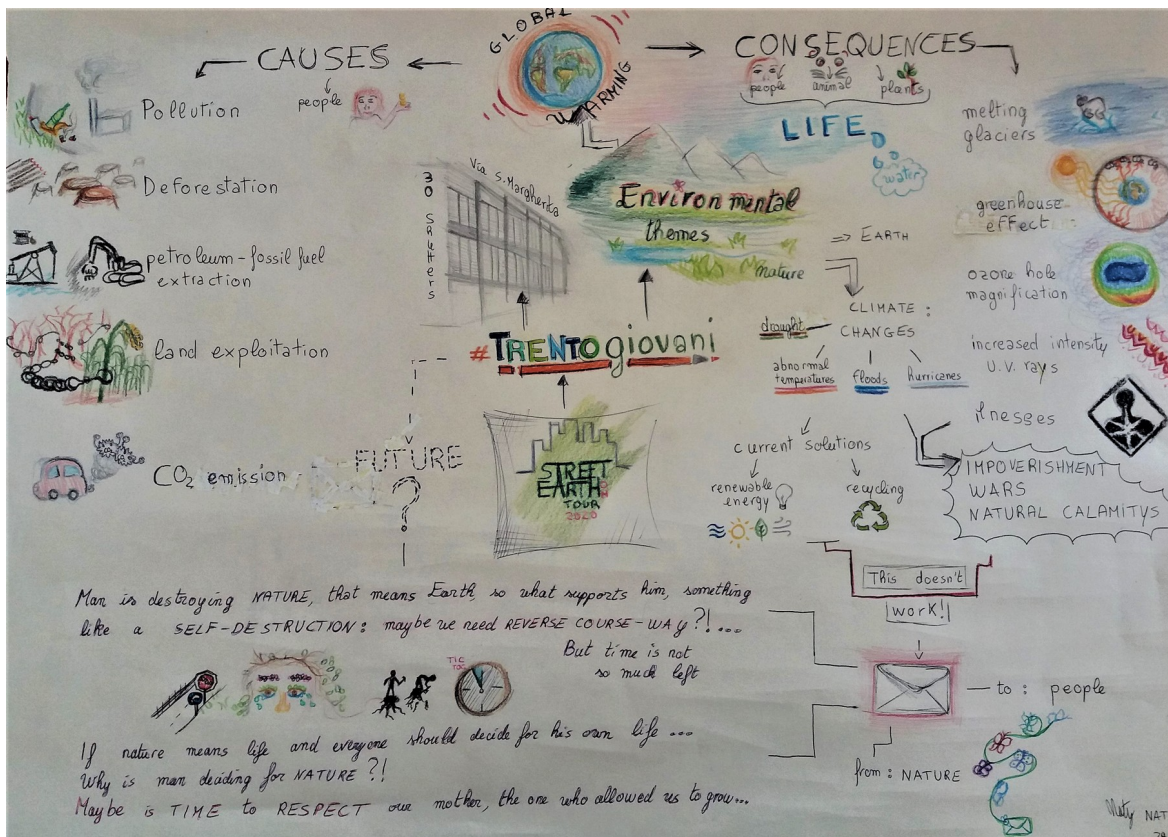 GLOBAL
WARMING
CAUSES
people
Pollution
Deforestation
petroleum-fossil fuel
extraction
land exploitation
CO2 emission
CONSEQUENCES
people
animal
plants
LIFE
water
melting
glaciers
greenhouse
effect
ozone hole
magnification
increased intensity
U.V. rays
illnesses
IMPOVERISHMENT
WARS
NATURAL CALAMITYS
Via S. Margherita
30 SHUTTERS
Environmental
themes
nature
⇒ EARTH
CLIMATE:
CHANGES
drought
abnormal
temperatures
floods
hurricanes
current solutions
renewable
energy
recycling
This doesn't
work!
#TRENTOgiovani
STREET
EARTH
TOUR
2020
FUTURE
?
Man is destroying NATURE, that means Earth, so what supports him, something
like a SELF-DESTRUCTION: maybe we need REVERSE COURSE-WAY?!...
But time is not
so much left
TIC
TOC
If nature means life and everyone should decide for his own life ...
Why is man deciding for NATURE?!
Maybe is TIME to RESPECT our mother, the one who allowed us to grow...
to: people
from: NATURE